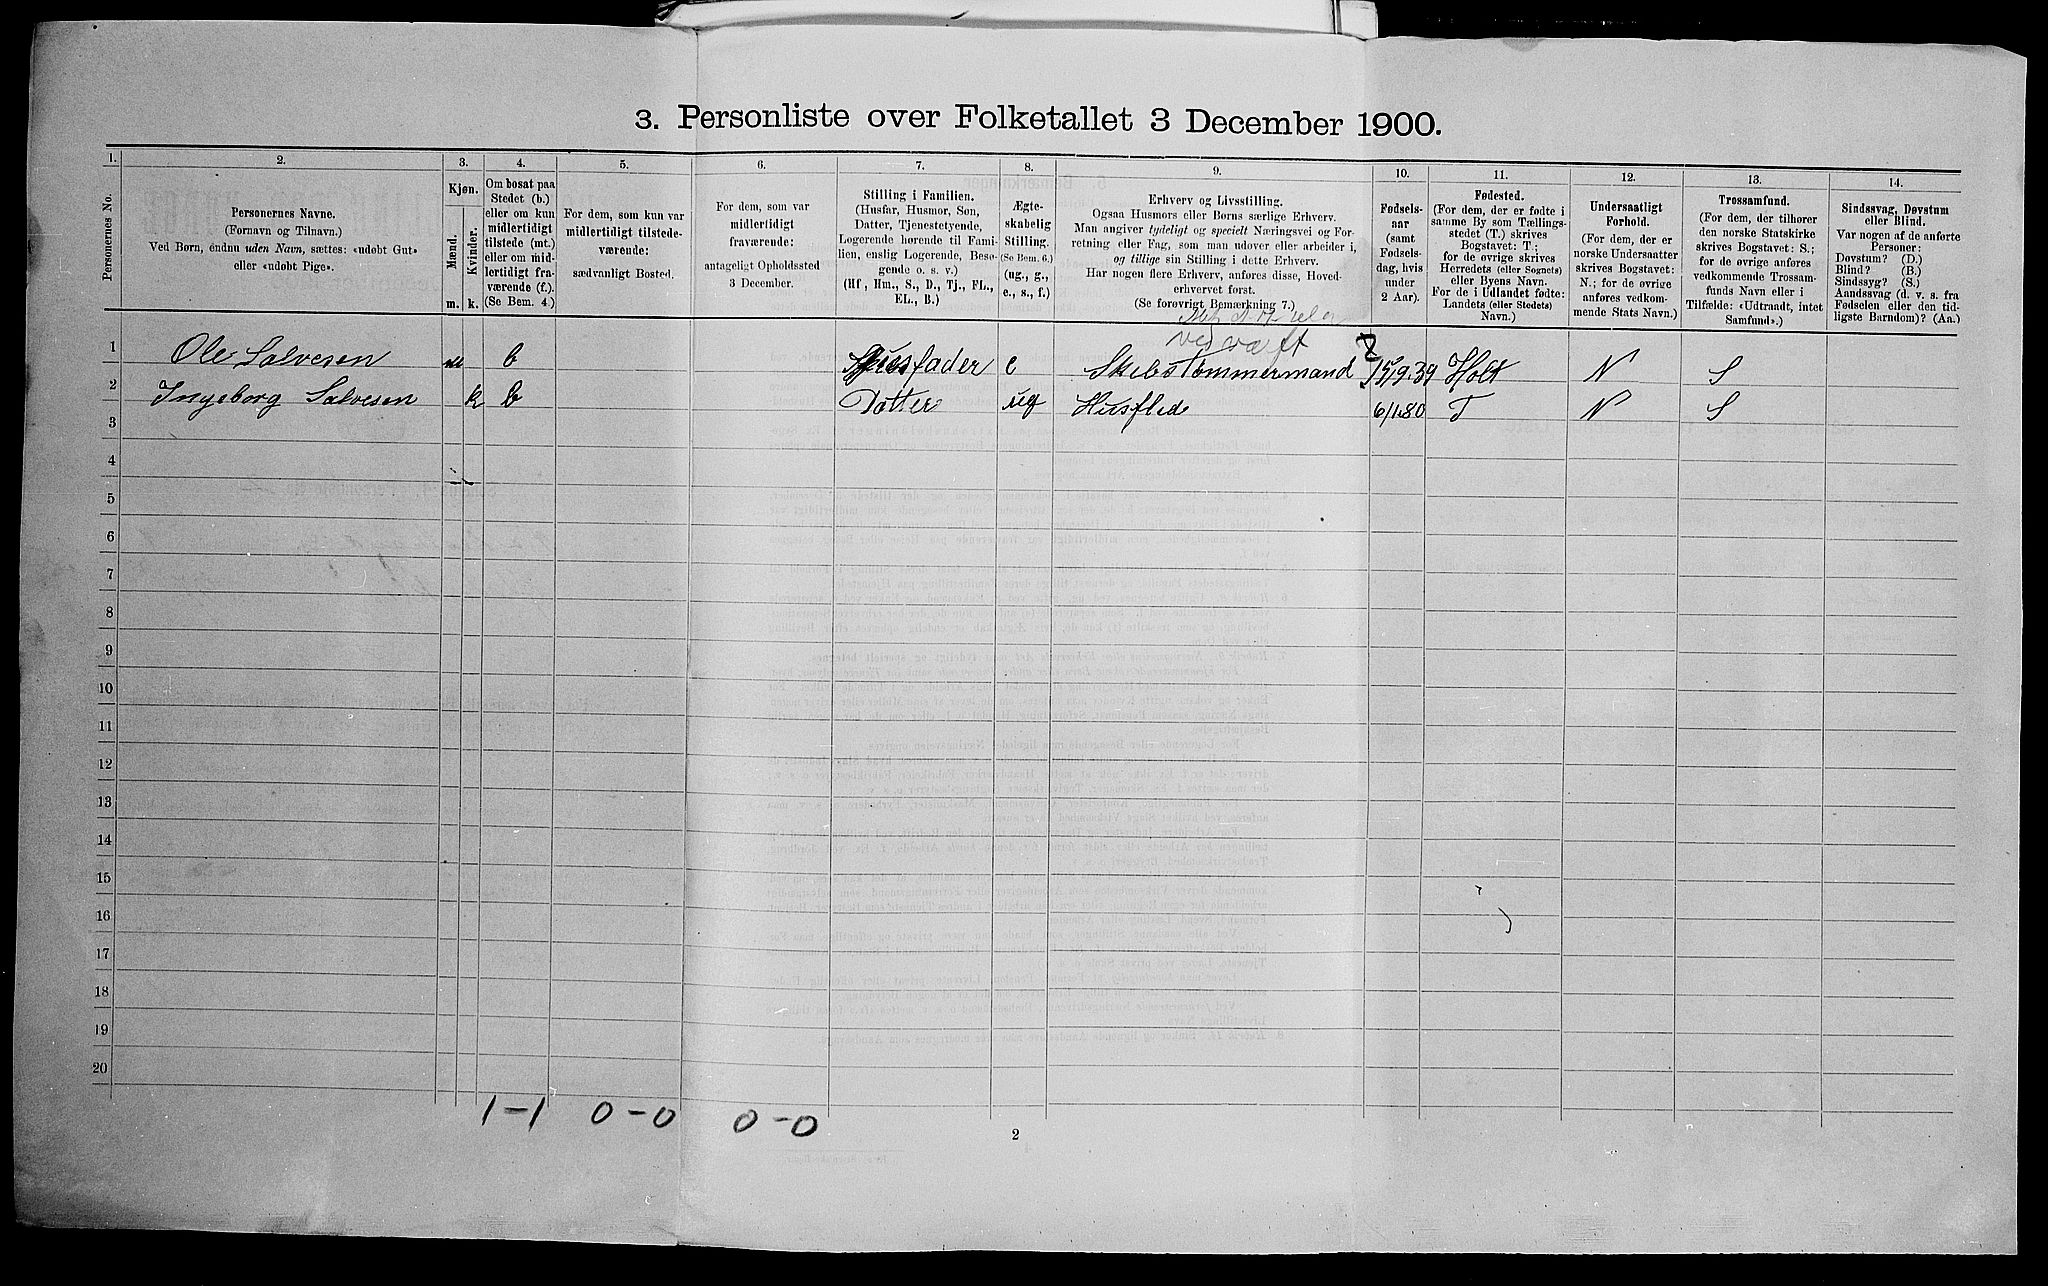 3. Personliste over Folketallet 3 December 1900.
1. 2. 3. 4. 5. 6. 7. 8. 9. 10. 11. 12. 13. 14.
Personernes No.
Personernes Navne.
(Fornavn og Tilnavn.)
Ved Børn, éndnu uden Navn, sættes: «udøbt Gut»
eller «udøbt Pige».
Kjøn.
Mænd.
Kvinder.
m. k.
Om bosat paa
Stedet (b.)
eller om kun
midlertidigt
tilstede (mt.)
eller om mid-
lertidigt fra-
værende (f.).
(Se Bem. 4.)
For dem, som kun var
midlertidigt tilstede-
værende:
sædvanligt Bosted.
For dem, som var
midlertidigt
fraværende:
antageligt Opholdssted
3 December.
Stilling i Familien.
(Husfar, Husmor, Søn,
Datter, Tjenestetyende,
Logerende hørende til Fami-
lien, enslig Logerende, Besø-
gende o. s. v.)
(Hf, Hm., S., D., Tj., FL.,
EL., B.)
Ægte-
skabelig
Stilling.
(Se Bem. 6.)
(ug., g.,
e., s., f.)
Erhverv og Livsstilling.
Ogsaa Husmors eller Børns særlige Erhverv.
Man angiver tydeligt og specielt Næringsvei og For-
retning eller Fag, som man udover eller arbeider i,
og tillige sin Stilling i dette Erhverv.
Har nogen flere Erhverv, anføres disse, Hoved-
erhvervet først.
(Se forøvrigt Bemærkning 7.)
Fødsels-
aar
(samt
Fødsels-
dag, hvis
under
2 Aar).
Fødested.
(For dem, der er fødte i
samme By som Tællings-
stedet (T.) skrives
Bogstavet: T.;
for de øvrige skrives
Herredets (eller Sognets)
eller Byens Navn.
For de i Udlandet fødte:
Landets (eller Stedets)
Navn.)
Undersaatligt
Forhold.
(For dem, der er
norske Undersaatter
skrives Bogstavet:
N.; for de øvrige
anføres vedkom-
mende Stats Navn.)
Trossamfund.
(For dem, der tilhører
den norske Statskirke
skrives Bogstavet: S.;
for de øvrige anføres
vedkommende Trossam-
funds Navn eller i
Tilfælde: «Udtraadt, intet
Samfund».)
Sindssvag, Døvstum
eller Blind.
Var nogen af de anførte
Personer:
Døvstum? (D.)
Blind? (B.)
Sindssyg? (S.)
Aandssvag (d. v. s. fra
Fødselen eller den tid-
ligste Barndom)? (Aa.)
ved værft
1 Ole Salvesen m b Husfader e Skibstømmermand 15/9.39 Holt N S
2 Ingeborg Salvesen k b Datter ug Husflid 6/1.80 T N S
3
4
5
6
7
8
9
10
11
12
13
14
15
16
17
18
19
20
1-1 0-0 0-0
2